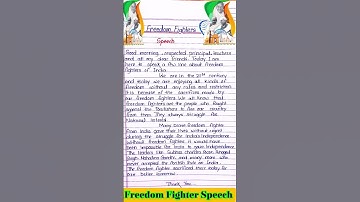 Freedom Fighters
Speech
Good morning, respected principal, teachers
and all my dear friends. Today I am
here to speak a few line about freedom
fighters of India.
We are in the 21st century
and today we are enjoying all kinds of
freedom without any rules and restriction
It is because of the sacrifices made by
our freedom fighters. We all know that
freedom fighters are the people who fought
against the Britishers to free our country
from them. They always struggle for
National interest.
Many brave freedom fighter
from India gave their lives without regret
during the struggle for India's independence
Without freedom fighters it would have
been impossible for India to gain independence.
The leaders like Subhas Chandra Bose, Bhagat
Singh, Mahatma Gandhi, and many more who
never accepted the British Rule on India.
The freedom fighter sacrificed their today for
our better tomorrow.
Thank You
Freedom Fighter Speech